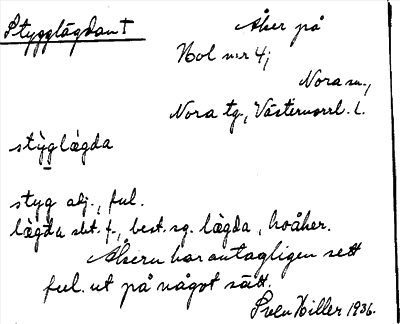 Stygglägdan † Åker på
Hol n:r 4;
Nora sn.,
Nora tg., Västernorrl. l.
stỳglǽgda
styg adj., ful.
lǽgda sbt. f., best. sg. lǽgda, hoåker.
Åkern har antagligen sett
ful ut på något sätt.
Sven Hiller 1936.